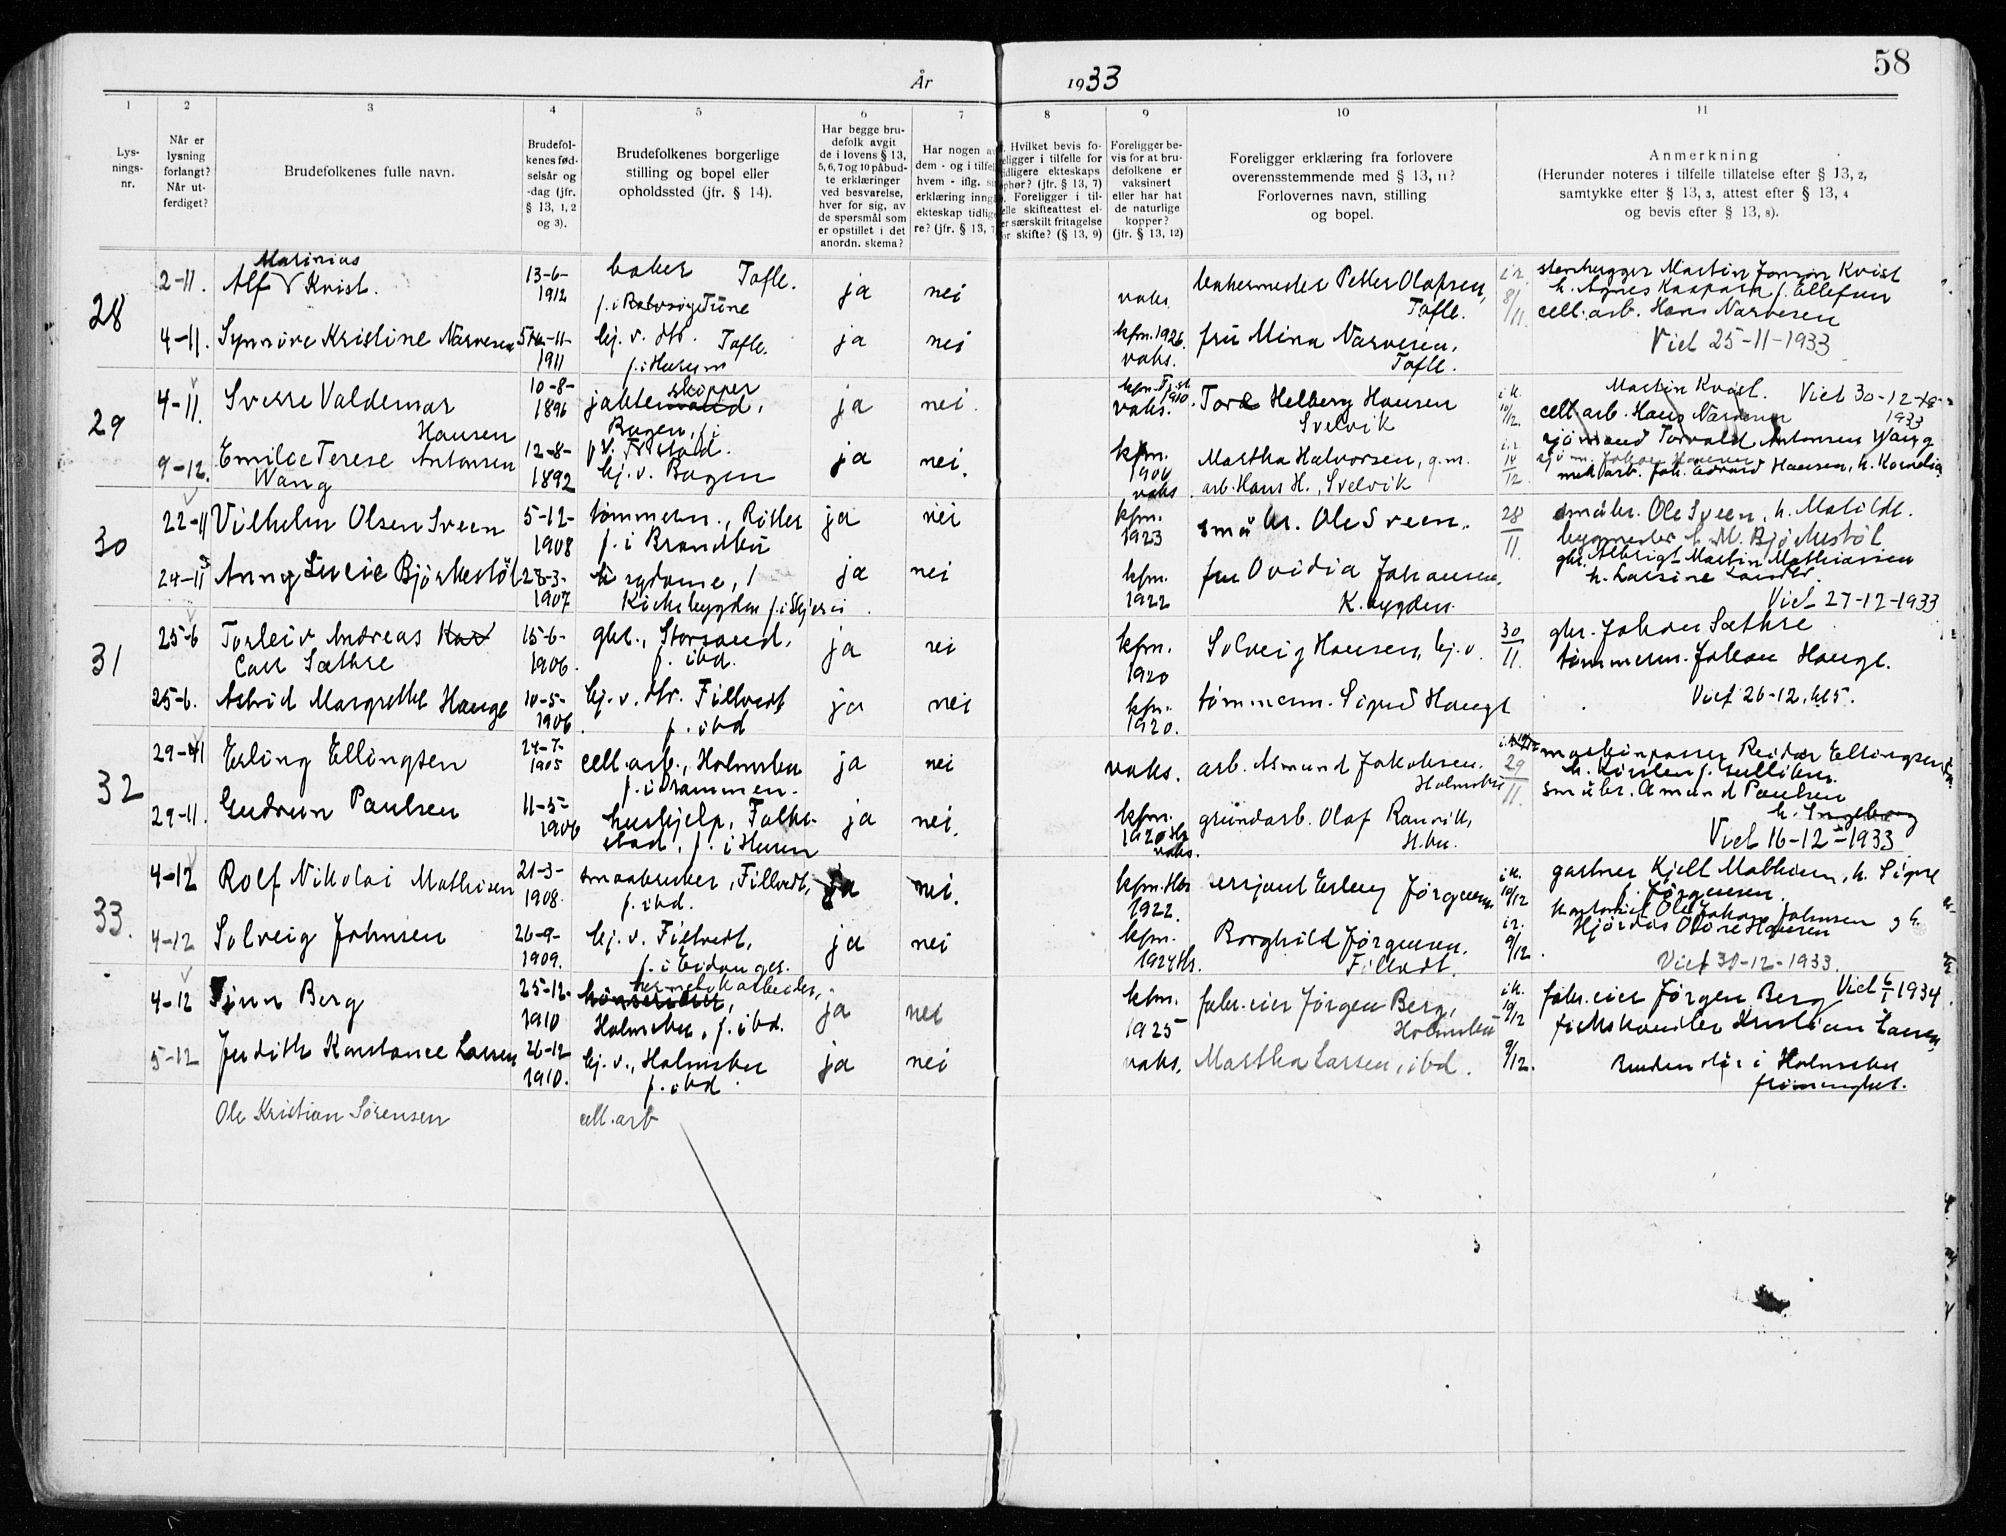 58
År 1933
1 2 3 4 5 6 7 8 9 10 11
Lys-
nings-
nr.
Når er
lysning
forlangt?
Når ut-
ferdiget?
Brudefolkenes fulle navn.
Brudefol-
kenes fød-
selsår og
-dag (jfr.
§ 13, 1, 2
og 3).
Brudefolkenes borgerlige
stilling og bopel eller
opholdssted (jfr. § 14).
Har begge bru-
defolk avgit
de i lovens § 13,
5, 6, 7 og 10 påbud-
te erklæringer
ved besvarelse,
hver for sig, av
de spørsmål som
er opstillet i det
anordn. skema?
Har nogen av
dem - og i tilfel
hvem - iflg. si
erklæring inng
ekteskap tidlig
re? (jfr. § 13, 7
Hvilket bevis fo-
religger i tilfelle for
tidligere ekteskaps
ophør? (jfr. § 13, 7)
Foreligger i til-
felle skifteattest el-
er særskilt fritagelse
or skifte? (§ 13, 9)
Foreligger be-
vis for at bru-
defolkene er
vaksinert
eller har hat
de naturlige
kopper?
(jfr. § 13, 12)
Foreligger erklæring fra forlovere
overensstemmende med § 13, 11?
Forlovernes navn, stilling
og bopel.
Anmerkning
(Herunder noteres i tilfelle tillatelse efter § 13, 2,
samtykke efter § 13, 3, attest efter § 13, 4
og bevis efter § 13, 8).
28
2-11. Alf Marinius Kvist. 13-6-1912 baker Tofte. ja nei vaks. bakermester Petter Olafsen, Tofte.
8/11 stenhugger Martin Jonsen Kvist
4-11. Synnøve Kristine Narvesen 11-1911 hj. v. Tofte. ja nei kfm. 1926. vaks. fru Mina Narvesen, Tofte.
f. i Hurum
cell. arb. Hans Narvesen
Viet 25-11-1933
29
4-11. Sverre Valdemar Hansen 10-8-1896 jakteskipper ja nei. vaks. Tore Helberg Hansen
Svelvik
Martin Kvist. Viet 30-12-1933
cell. arb. Hans Narvesen
9-12. Emilie Terese Antonsen Wang 12-8-1892 hj. v. Bogen ja nei. kfm. 1906 vaks. Martha Halvorsen, g.m.
arb. Hans H., Svelvik
sjømand Torvald Antonsen Wang
30
22-11 Vilhelm Olsen Sveen 5-12-1908 tømmerm., Røtter ja nei kfm. 1923 småbr. Ole Sveen.
f. i Brandbu
28/11 småbr. Ole Sveen, h. Matilde.
24-11 Anny Lucie Bjørkestøl 3-1907 ja nei kfm. 1922 fru Ovidia Johansen,
K.bygden.
Kirkebygden
gbr. Albrigt Martin Mathiassen
Viet 27-12-1933
31
25-6 Torleiv Andreas Carl Sæthre 15-6-1906. gbr., Storsand, ja nei kfm. 1920 Solveig Hansen, hj. v.
f. ibd.
30/11. gbr. Johan Sæthre
25-6. Astrid Margrethe Hauge 10-5-1906 hj. v. Filtvedt ja nei kfm. 1920. tømmerm. Sigurd Hauge
f. ibd
tømmerm. Johan Hauge.
Viet 26-12.
32
29-11 Erling Ellingsen 24-7-1905 cell. arb., Holmsbu ja nei vaks. arb. Asmund Jakobsen.
f. i Drammen. Holmsbu
29/11. maskinpasser Reidar Ellingsen
29-11. Gudrun Paulsen 11-5-1906 hushjelp, ja nei. kfm. 1920 vaks. grundarb. Olaf Ranvik,
H.bu.
f. i Hurum
småbr. Amund Paulsen
h. Ingeborg
Viet 16-12-1933
33.
4-12 Rolf Nikolai Mathisen 21-3-1908. smaabruker, Filtvedt, ja nei. kfm. 1922. Erling Jørgensen
f. ibd.
10/12 gartner Kjell Mathisen, h. Signe
f. Jørgensen.
4-12 Solveig Johnsen 26-9-1909. hj. v. Filtvedt, ja nei kfm. 1924 Borghild Jørgensen,
Filtvedt.
f. i Eidanger.
9/12. Ole Johan Johnsen
Hjørdis Hansen
Viet 30-12-1933
4-12 Finn Berg 25-12-1910 hermetikarbeider, ja nei kfm. 1925 fabr. eier Jørgen Berg,
Holmsbu, f. ibd. Holmsbu
10/12 fabr. eier Jørgen Berg Viet 1934.
5-12 Judith Konstance Larsen 26-12-1910. hj. v., Holmsbu ja nei vaks. Martha Larsen, ibd.
f. ibd.
9/12. fiskehandler Kristian Larsen
Bruden i Holmsbu
frimenighet.
Ole Kristian Sørensen cell. arb